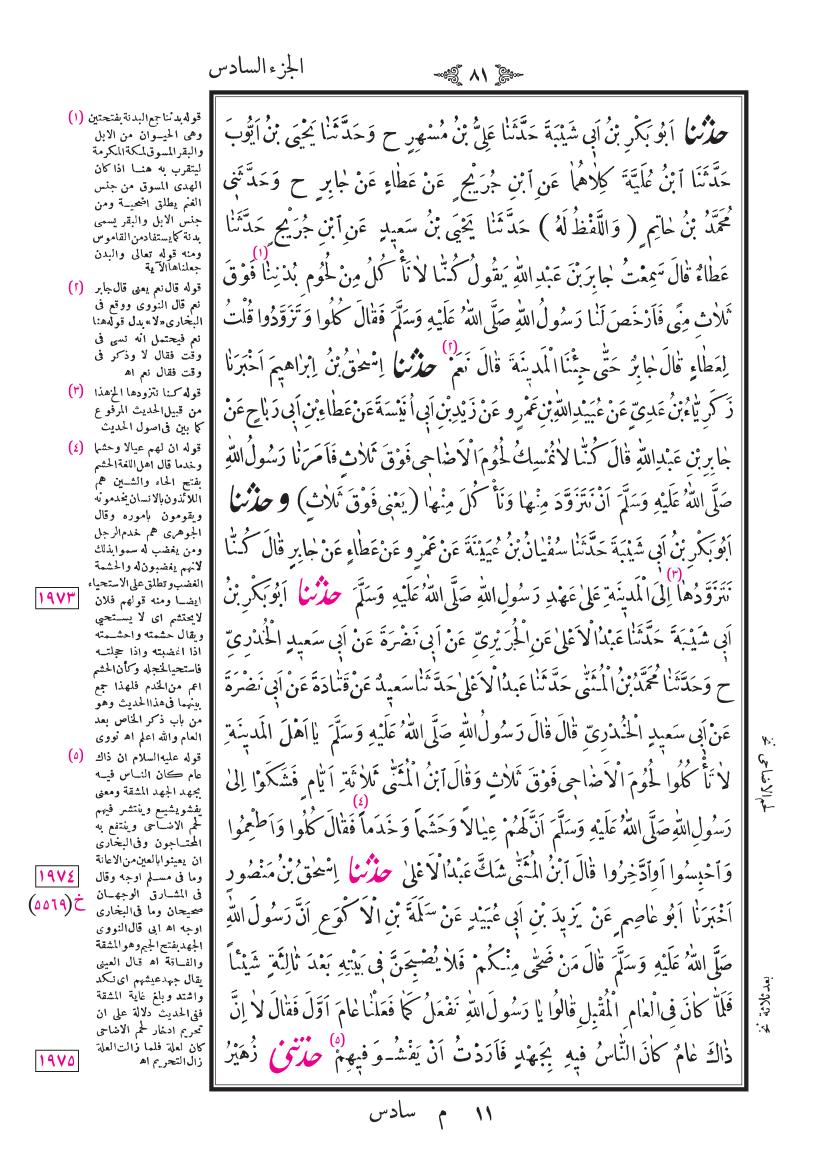 الجزء السادس
٨١
حَدَّثَنَا اَبُو بَكْرِ بْنُ اَبِى شَيْبَةَ حَدَّثَنَا عَلِىُّ بْنُ مُسْهِرٍ ح وَحَدَّثَنَا يَحْيَى بْنُ اَيُّوبَ
حَدَّثَنَا ابْنُ عُلَيَّةَ كِلَاهُمَا عَنِ ابْنِ جُرَيْجٍ عَنْ عَطَاءٍ عَنْ جَابِرٍ ح وَحَدَّثَنِى
مُحَمَّدُ بْنُ حَاتِمٍ ( وَاللَّفْظُ لَهُ ) حَدَّثَنَا يَحْيَى بْنُ سَعِيدٍ عَنِ ابْنِ جُرَيْجٍ حَدَّثَنَا
عَطَاءٌ قَالَ سَمِعْتُ جَابِرَ بْنَ عَبْدِ اللهِ يَقُولُ كُنَّا لَا نَأْكُلُ مِنْ لُحُومِ بُدْنِنَا (١) فَوْقَ
ثَلَاثِ مِنًى فَاَرْخَصَ لَنَا رَسُولُ اللهِ صَلَّى اللهُ عَلَيْهِ وَسَلَّمَ فَقَالَ كُلُوا وَتَزَوَّدُوا قُلْتُ
لِعَطَاءٍ قَالَ جَابِرٌ حَتَّى جِئْنَا الْمَدِينَةَ قَالَ نَعَمْ (٢) حَدَّثَنَا اِسْحٰقُ بْنُ اِبْرَاهِيمَ اَخْبَرَنَا
زَكَرِيَّاءُ بْنُ عَدِىٍّ عَنْ عُبَيْدِ اللهِ بْنِ عَمْرٍو عَنْ زَيْدِ بْنِ اَبِى اُنَيْسَةَ عَنْ عَطَاءِ بْنِ اَبِى رَبَاحٍ عَنْ
جَابِرِ بْنِ عَبْدِ اللهِ قَالَ كُنَّا لَا نُمْسِكُ لُحُومَ الْاَضَاحِى فَوْقَ ثَلَاثٍ فَاَمَرَنَا رَسُولُ اللهِ
صَلَّى اللهُ عَلَيْهِ وَسَلَّمَ اَنْ نَتَزَوَّدَ مِنْهَا وَنَأْكُلَ مِنْهَا (يَعْنِى فَوْقَ ثَلَاثٍ) وَحَدَّثَنَا
اَبُو بَكْرِ بْنُ اَبِى شَيْبَةَ حَدَّثَنَا سُفْيَانُ بْنُ عُيَيْنَةَ عَنْ عَمْرٍو عَنْ عَطَاءٍ عَنْ جَابِرٍ قَالَ كُنَّا
نَتَزَوَّدُهَا (٣) اِلَى الْمَدِينَةِ عَلَى عَهْدِ رَسُولِ اللهِ صَلَّى اللهُ عَلَيْهِ وَسَلَّمَ حَدَّثَنَا اَبُو بَكْرِ بْنُ
اَبِى شَيْبَةَ حَدَّثَنَا عَبْدُ الْاَعْلَى عَنِ الْجُرَيْرِىِّ عَنْ اَبِى نَضْرَةَ عَنْ اَبِى سَعِيدٍ الْخُدْرِىِّ
ح وَحَدَّثَنَا مُحَمَّدُ بْنُ الْمُثَنَّى حَدَّثَنَا عَبْدُ الْاَعْلَى حَدَّثَنَا سَعِيدٌ عَنْ قَتَادَةَ عَنْ اَبِى نَضْرَةَ
عَنْ اَبِى سَعِيدٍ الْخُدْرِىِّ قَالَ قَالَ رَسُولُ اللهِ صَلَّى اللهُ عَلَيْهِ وَسَلَّمَ يَا اَهْلَ الْمَدِينَةِ
لَا تَأْكُلُوا لُحُومَ الْاَضَاحِى فَوْقَ ثَلَاثٍ وَقَالَ ابْنُ الْمُثَنَّى ثَلَاثَةِ اَيَّامٍ فَشَكَوْا اِلَى
رَسُولِ اللهِ صَلَّى اللهُ عَلَيْهِ وَسَلَّمَ اَنَّ لَهُمْ عِيَالًا وَحَشَمًا (٤) وَخَدَمًا فَقَالَ كُلُوا وَاَطْعِمُوا
وَاحْبِسُوا اَوِادَّخِرُوا قَالَ ابْنُ الْمُثَنَّى شَكَّ عَبْدُ الْاَعْلَى حَدَّثَنَا اِسْحٰقُ بْنُ مَنْصُورٍ
اَخْبَرَنَا اَبُو عَاصِمٍ عَنْ يَزِيدَ بْنِ اَبِى عُبَيْدٍ عَنْ سَلَمَةَ بْنِ الْاَكْوَعِ اَنَّ رَسُولَ اللهِ
صَلَّى اللهُ عَلَيْهِ وَسَلَّمَ قَالَ مَنْ ضَحَّى مِنْكُمْ فَلَا يُصْبِحَنَّ فِى بَيْتِهِ بَعْدَ ثَالِثَةٍ شَيْئًا
فَلَمَّا كَانَ فِى الْعَامِ الْمُقْبِلِ قَالُوا يَا رَسُولَ اللهِ نَفْعَلُ كَمَا فَعَلْنَا عَامَ اَوَّلَ فَقَالَ لَا اِنَّ
ذَاكَ عَامٌ كَانَ النَّاسُ فِيهِ بِجَهْدٍ فَاَرَدْتُ اَنْ يَفْشُوَ فِيهِمْ (٥) حَدَّثَنِى زُهَيْرُ
(١) قوله بدننا جمع البدنة بفتحتين
وهى الحيوان من الابل
والبقر المسوق لمكة المكرمة
ليتقرب به هنا اذا كان
الهدى المسوق من جنس
الغنم يطلق اضحية ومن
جنس الابل والبقر يسمى
بدنة كما يستفاد من القاموس
ومنه قوله تعالى والبدن
جعلناها الآية
(٢) قوله قال نعم يعنى قال جابر
نعم قال النووى ووقع فى
البخارى «لا» بدل قوله هنا
نعم فيحتمل انه نسى فى
وقت فقال لا وذكر فى
وقت فقال نعم اه
(٣) قوله كنا نتزودها الخ هذا
من قبيل الحديث المرفوع
كما بين فى اصول الحديث
(٤) قوله ان لهم عيالا وحشما
وخدما قال اهل اللغة الحشم
بفتح الحاء والشين هم
اللائذون بالانسان يخدمونه
ويقومون باموره وقال
الجوهرى هم خدم الرجل
ومن يغضب له سموا بذلك
لانهم يغضبون له والحشمة
الغضب وتطلق على الاستحياء
ايضا ومنه قولهم فلان
لا يحتشم اى لا يستحيى
ويقال حشمته واحشمته
اذا اغضبته واذا خجلته
فاستحيا لخجله وكأن الحشم
اعم من الخدم فلهذا جمع
بينهما فى هذا الحديث وهو
من باب ذكر الخاص بعد
العام والله اعلم اه نووى
(٥) قوله عليه السلام ان ذاك
عام كان الناس فيه
بجهد الجهد المشقة ومعنى
يفشو يشيع وينتشر فيهم
لحم الاضاحى وينتفع به
المحتاجون وفى البخارى
ان يعينوا بالعين من الاعانة
وما فى مسلم اوجه وقال
فى المشارق الوجهان
صحيحان وما فى البخارى
اوجه اه ابى قال النووى
الجهد بفتح الجيم وهو المشقة
والفاقة اه قال العينى
يقال جهد عيشهم اى نكد
واشتد وبلغ غاية المشقة
ففى الحديث دلالة على ان
تحريم ادخار لحم الاضاحى
كان لعلة فلما زالت العلة
زال التحريم اه
١٩٧٣
١٩٧٤
خ (٥٥٦٩)
١٩٧٥
لحم الاضاحى نخ
بعد ثلاثة نخ
١١ م سادس